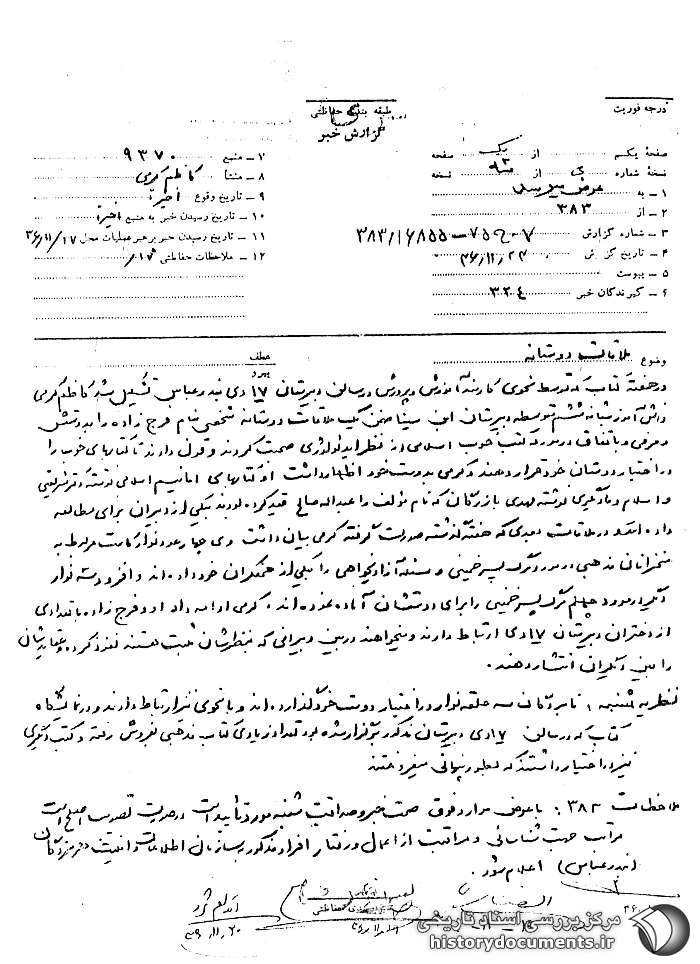 درجه فوریت
طبقه بندی حفاظتی
گزارش خبر
صفحه یکم از یک صفحه
نسخه شماره از نسخه
۱ ـ به
۲ ـ از ۳۸۳
۳ ـ شماره گزارش
۴ ـ تاریخ گزارش ۳۶/۱۱/۲۳
۵ ـ پیوست
۶ ـ گیرندگان خبر ۳۲۴
۷ ـ منبع ۹۳۷۰
۸ ـ منشأ کاظم کرمی
۹ ـ تاریخ وقوع اخیراً
۱۰ ـ تاریخ رسیدن خبر به منبع اخیراً
۱۱ ـ تاریخ رسیدن خبر به رهبر عملیات محل ۳۶/۱۱/۱۷
۱۲ ـ ملاحظات حفاظتی
موضوع ملاقات دوستانه
عطف
پیرو
در هفته کتاب که توسط نحوی کارمند آموزش و پرورش در سالن دبیرستان ۱۷ دی بندرعباس تشکیل شد کاظم کرمی
دانش آموز شبانه ششم متوسطه دبیرستان ابن سینا ضمن یک ملاقات دوستانه شخصی بنام فرج زاده را به دوستش
معرفی و باتفاق در مورد کتب خوب اسلامی از نظر ایدئولوژی صحبت کردند و قول دادند تا کتابهای خوب را
در اختیار دوستان خود قرار دهند و کرمی به دوست خود اظهار داشت او کتابهای اسلامی نوشته دکتر شریعتی
و اسلام و نوشته مهدی بازرگان که نام مؤلف را عبداله صالح قید کرده بودند بیکی از دبیران برای مطالعه
داده است و در ملاقات بعدی که هفته گذشته صورت گرفته کرمی بیان داشت وی چهار عدد نوار کاست مربوط به
سخنرانان مذهبی در مورد مرگ پسر خمینی و مسئله آزادیخواهی را بیکی از همفکران خود داده اند و افزود سه نوار
دیگر در مورد چهلم مرگ پسر خمینی را برای دوستشان آماده نموده اند، کرمی ادامه داد او و فرج زاده با تعدادی
از دختران دبیرستان ۱۷ دی ارتباط دارند و میخواهند در بین دبیرانی که بنظرشان مثبت هستند نفوذ کرده و عقایدشان
را بین دیگران انتشار دهند.
نظریه شنبه: نامبردگان سه حلقه نوار در اختیار دوست خود گذارده اند و با نحوی نیز ارتباط دارند و در نمایشگاه
کتاب که در سالن ۱۷ دی دبیرستان مذکور برگزار شده بود تعداد زیادی کتاب مذهبی بفروش رفته و کتب دیگری
نیز در اختیار داشتند که بطور پنهانی میفروختند
ملاحظات ۳۸۳: با عرض موارد فوق صحت خبر و صداقت شنبه مورد تأیید است در صورت تصویب اصلح است
مراتب جهت شناسائی و مراقبت از اعمال و رفتار افراد مذکور به سازمان اطلاعات و امنیت هرمزگان
(بندرعباس) اعلام شود.
مرکز بررسی اسناد تاریخی
historydocuments.ir